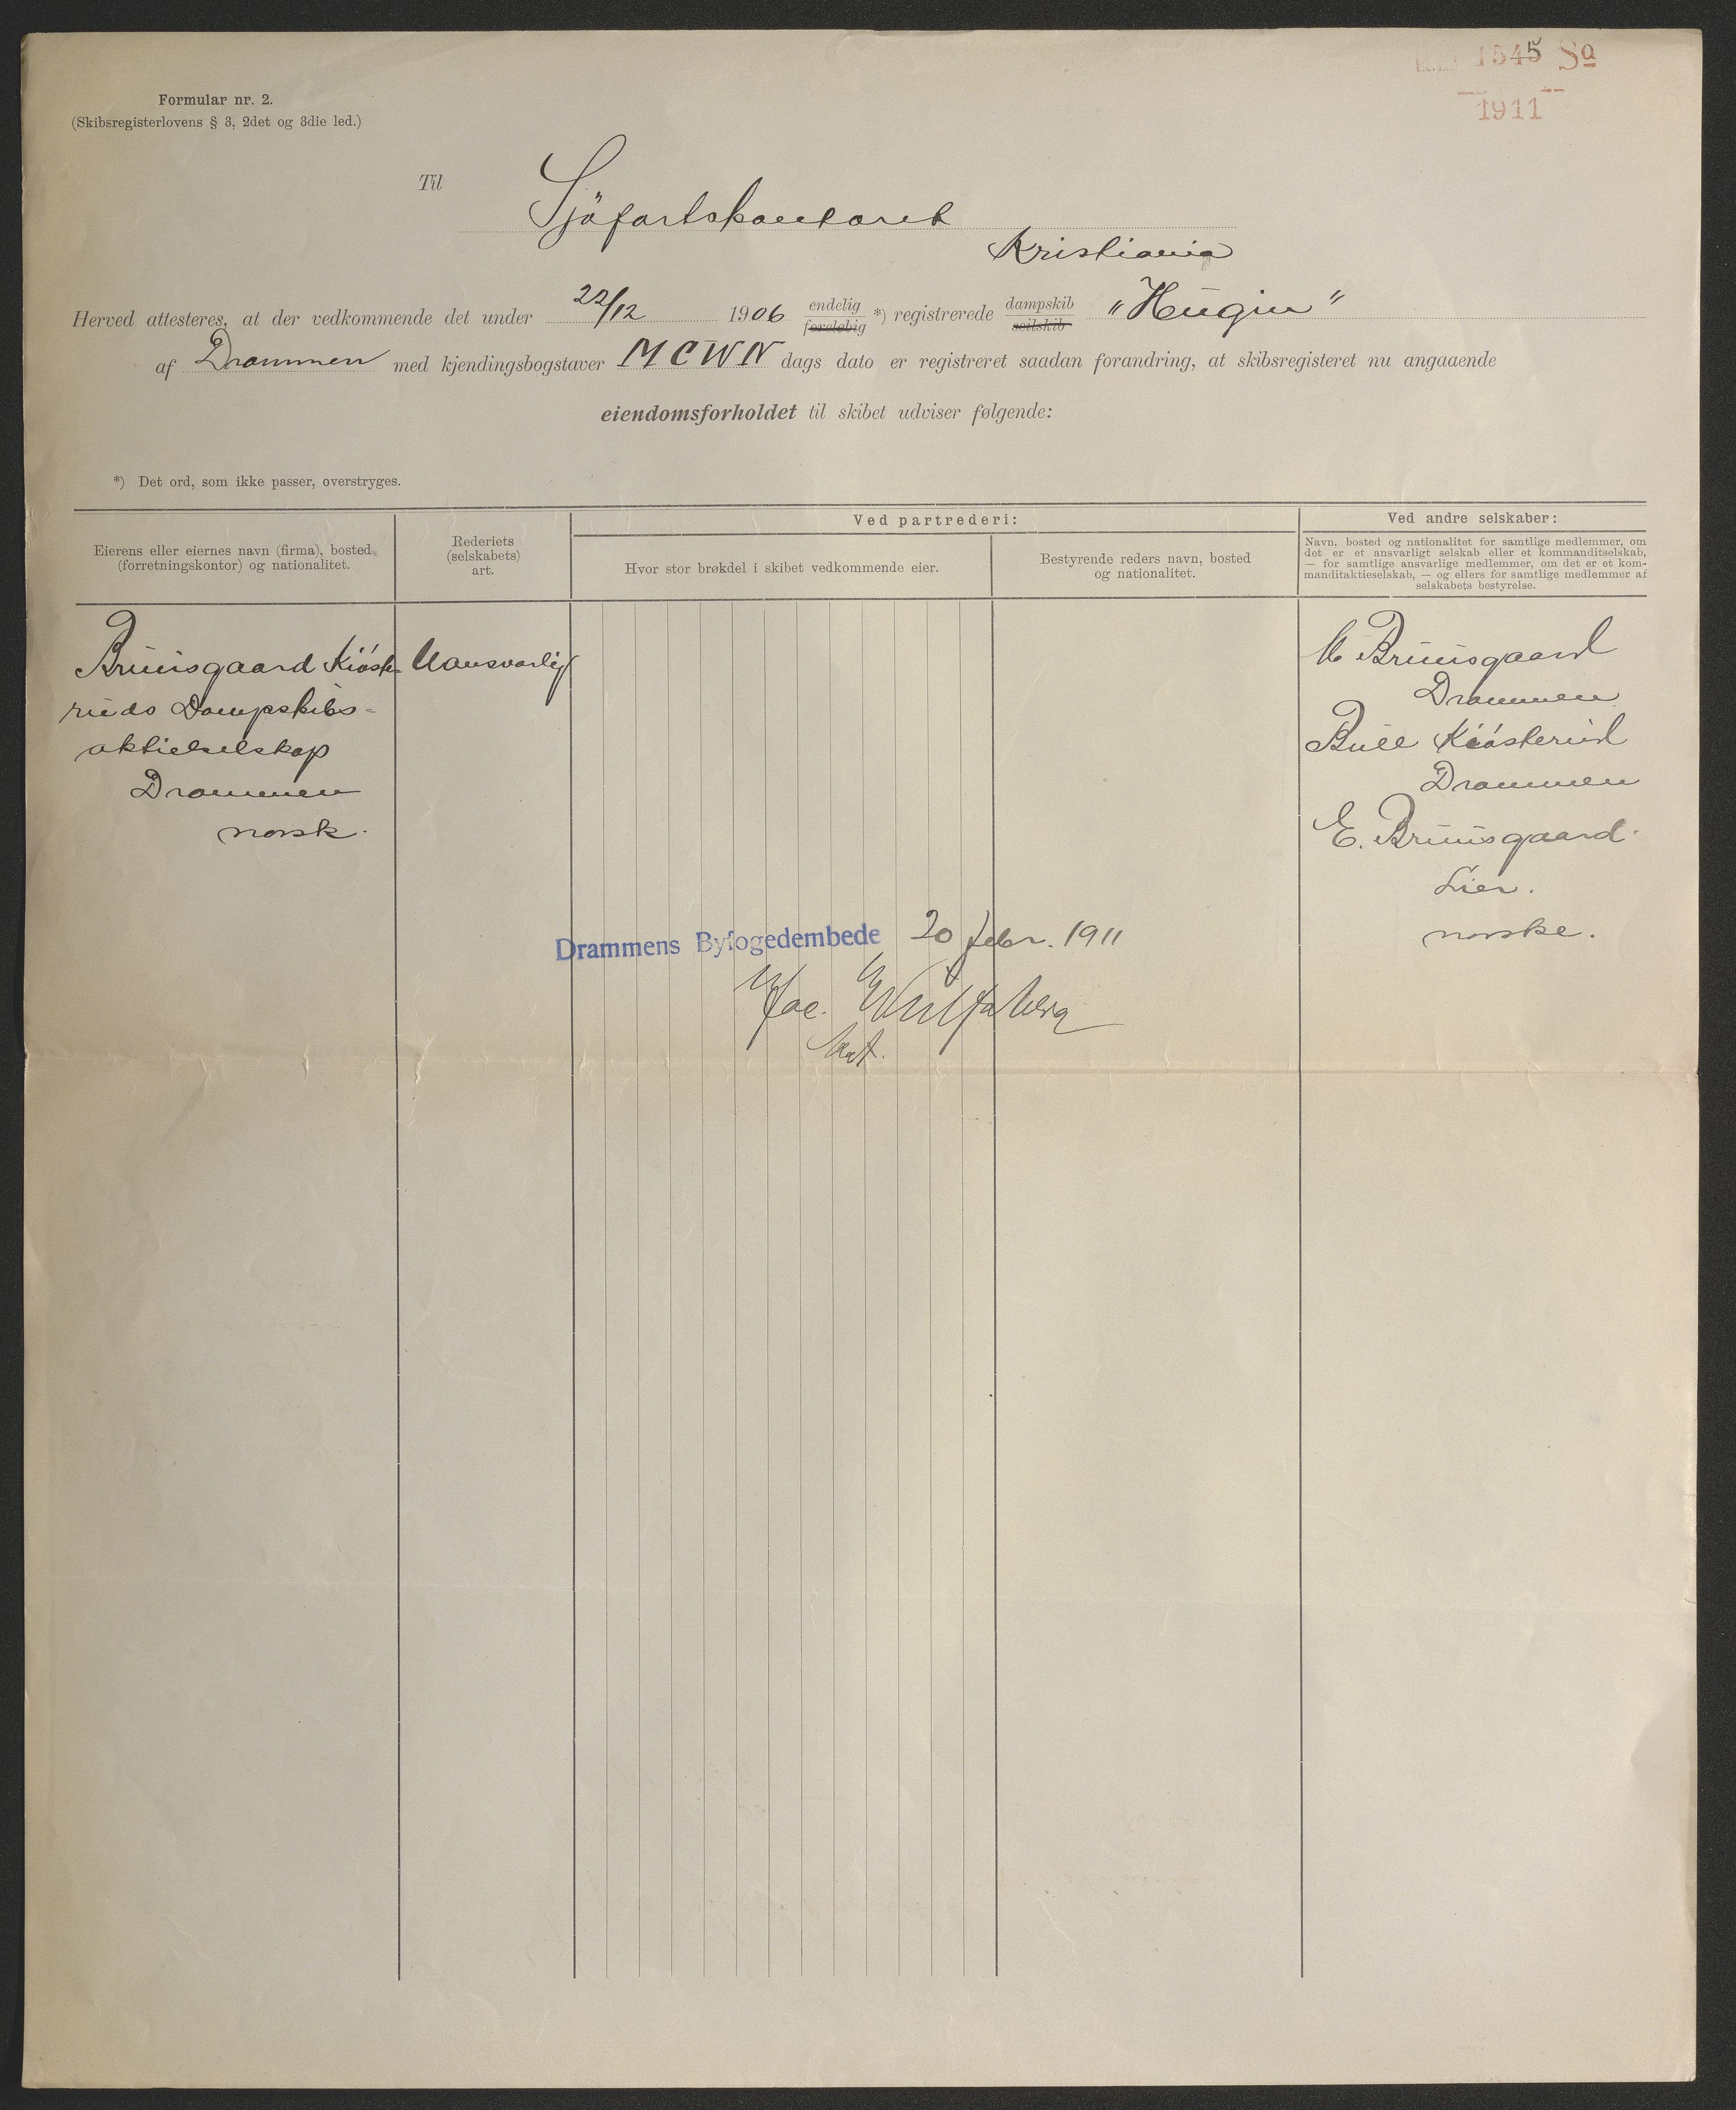 1545 Sa
1911
Formular nr. 2.
(Skibsregisterlovens § 3, 2det og 3die led.)
Til Sjöfartskontoret
Kristiania
Herved attesteres, at der vedkommende det under 22/12 1906 endelig foreløbig *) registrerede dampskib seilskib "Hugin"
af Drammen med kjendingsbogstaver MCWN dags dato er registreret saadan forandring, at skibsregisteret nu angaaende
eiendomsforholdet til skibet udviser følgende:
*) Det ord, som ikke passer, overstryges.
Eierens eller eiernes navn (firma), bosted
(forretningskontor) og nationalitet.
Rederiets
(selskabets)
art.
Ved partrederi:
Hvor stor brøkdel i skibet vedkommende eier.
Bestyrende reders navn, bosted
og nationalitet.
Ved andre selskaber:
Navn, bosted og nationalitet for samtlige medlemmer, om
det er et ansvarligt selskab eller et kommanditselskab,
— for samtlige ansvarlige medlemmer, om det er et kom-
manditaktieselskab, — og ellers for samtlige medlemmer af
selskabets bestyrelse.
Bruusgaard Kiöste-
ruds Dampskibs-
aktieselskap
Drammen
norsk.
Uansvarlig
Bruusgaard
Drammen
Bull Kiösterud
Drammen
E. Bruusgaard
Lier.
norske.
Drammens Byfogedembede 20 febr. 1911
Jac. Wulfsberg